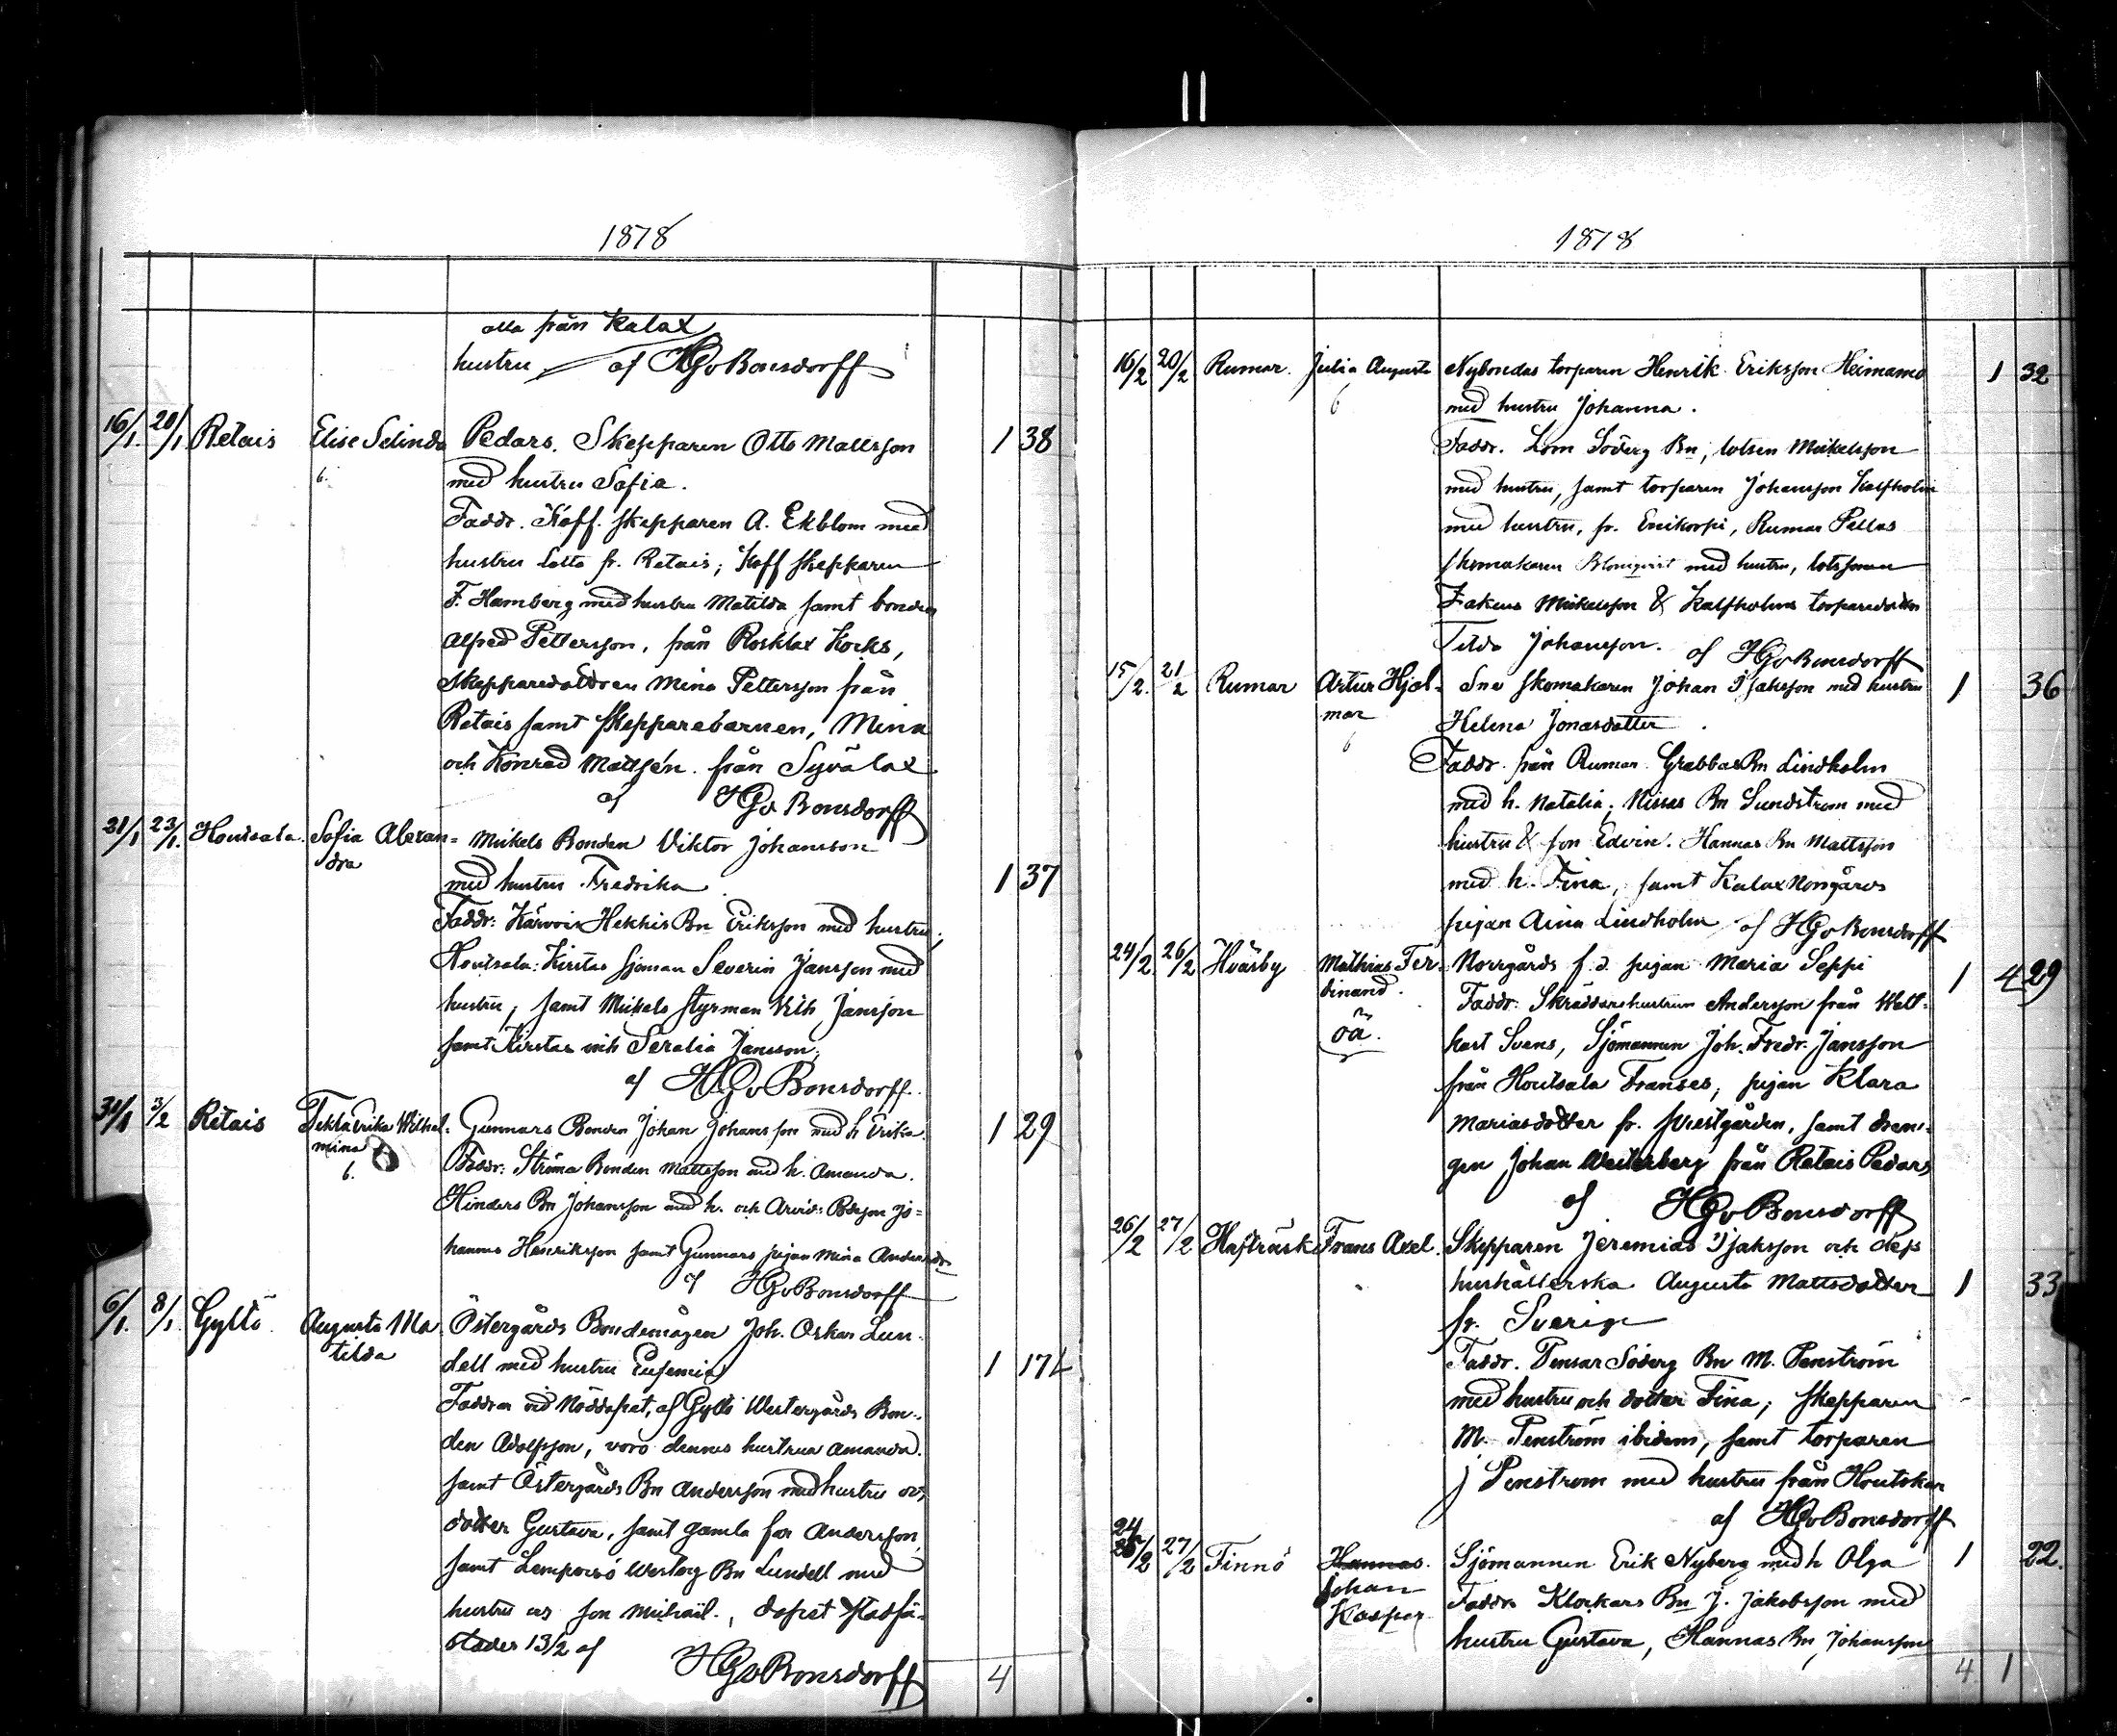 1878
alla från Kalax
hustru af HGvBonsdorff
16/1. 20/1 Retais Elise Selinda Pedars. Skepparen Otto Mattsson 1 38
6. med hustru Sofia.
Faddr. Koff. skepparen A. Ekblom med
hustru Lotta fr. Retais; Koff skepparen
F. Hamberg med hustru Matilda samt bonden
Alfred Pettersson, från Rosklax Kocks,
skepparedottren Mina Pettersson från
Retais samt skepparebarnen, Mina
och Konrad Mattsén från Syvälax
af HGvBonsdorff
21/1 23/1. Houtsala. Sofia Alexan= Mickels Bonden Viktor Johansson
dra med hustru Fredrika 1 37
Faddr: Kärvois Hekkis Bn Eriksson med hustru,
Houtsala: Kirstas sjöman Severin Jansson med
hustru, samt Mickels styrman Vilh Jansson
samt Kirstas Serafia Jansson.
af HGvBonsdorff.
31/1 3/2 Retais Tekla Erika Wilhel= Gunnars Bonden Johan Johansson med h Erika. 1 29
mina
6. Faddr: Ströma Bonden Mattsson med h. Amanda.
Hinders Bn Johansson med h. och Arvid: Bdeson Jo=
hannes Henriksson samt Gunnars pigan Mina Andersdr
af HGvBonsdorff
6/1. 8/1. Gyltö Augusta Ma= Östergårds Bondemågen Joh. Oskar Lun=
tilda dell med hustru Eufemia 1 17
Faddrar vid Nöddopet, af Gyltö Westergårds Bon=
den Adolfsson, voro dennes hustrun Amanda.
samt Östergårds Bn Andersson med hustru och
dotter Gustava, samt gamla far Andersson,
samt Lempersö Westerg Bn Lundell med
hustru och son Mickaël., dopet stadfä=
stades 13/2 af
HGvBonsdorff
4
1878
16/2 20/2 Rumar. Julia Augusta Nybondas torparen Henrik Eriksson Heimamo 1 32
6 med hustru Johanna.
Faddr. Lom Söderg Bn, lotsen Mickelsson
med hustru, samt torparen Johansson Kalfholm
med hustru, fr. Enikorpi, Rumar Pellas
skomakaren Blomqvist med hustru, lotsonen
Fakeus Mickelsson & Kalfholms torparedottren
Tilda Johansson. af HGvBonsdorff
15/2. 21/2 Rumar Artur Hjal= Sne skomakaren Johan Isaksson med hustru 1 36
mar Helena Jonasdotter.
6 Faddr. från Rumar. Grabbas Bn Lindholm
med h. Natalia; Nissas Bn Sundström med
hustru & son Edvin. Hannas Bn Mattsson
med h. Fina, samt Kalax Norrgårds
pigan Aina Lindholm af HGvBonsdorff
24/2 26/2 Hväsby Mathias Fer= Norrgårds f. d. pigan Maria Seppi 1 429
dinand. Faddr: Skräddarehustrun Andersson från Watt=
oä. kast Svens, Sjömannen Joh. Fredr. Jansson
från Houtsala Franses, pigan Klara
Mariasdotter fr. Prestgården, samt dren=
gen Johan Westerberg från Retais Pedars
af HGvBonsdorff
26/2 27/2 Hafträsk Frans Axel. Skepparen Jeremias Isaksson och dess
hushållerska Augusta Mattsdotter 1 33
fr. Sverige
Faddr. Pensar Söderg Bn M. Penström
med hustru och dotter Fina; skepparen
M. Penström ibidem, samt torparen
J Penström med hustru från Houtskar
af HGvBonsdorff
24
25/2 27/2 Finnö Hannas. Sjömannen Erik Nyberg med h Olga 1 22.
Johan Faddr. Klockars Bn J. Jakobsson med
Kasper hustru Gustava, Hannas Bn Johansson
4 1